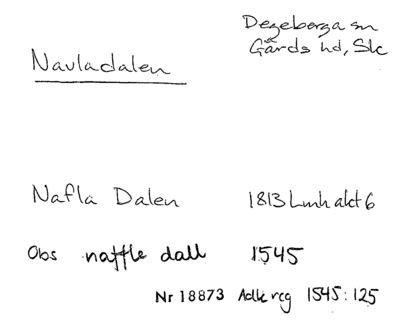 Degeberga sn
Gärds hd, Sk
Navladalen
Nafla Dalen 1813 Lmh akt 6
Obs naffle dall 1545
Nr 18873 Adlreg 1545:125